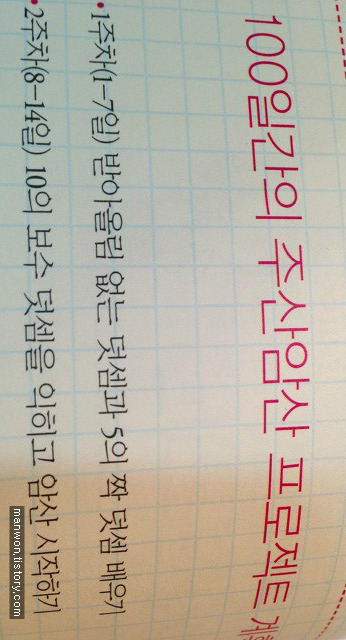 100일간의 주산암산 프로젝트
• 1주차(1-7일) 받아올림 없는 덧셈과 5의 짝 덧셈 배우기
• 2주차(8-14일) 10의 보수 덧셈을 익히고 암산 시작하기
manwon.tistory.com